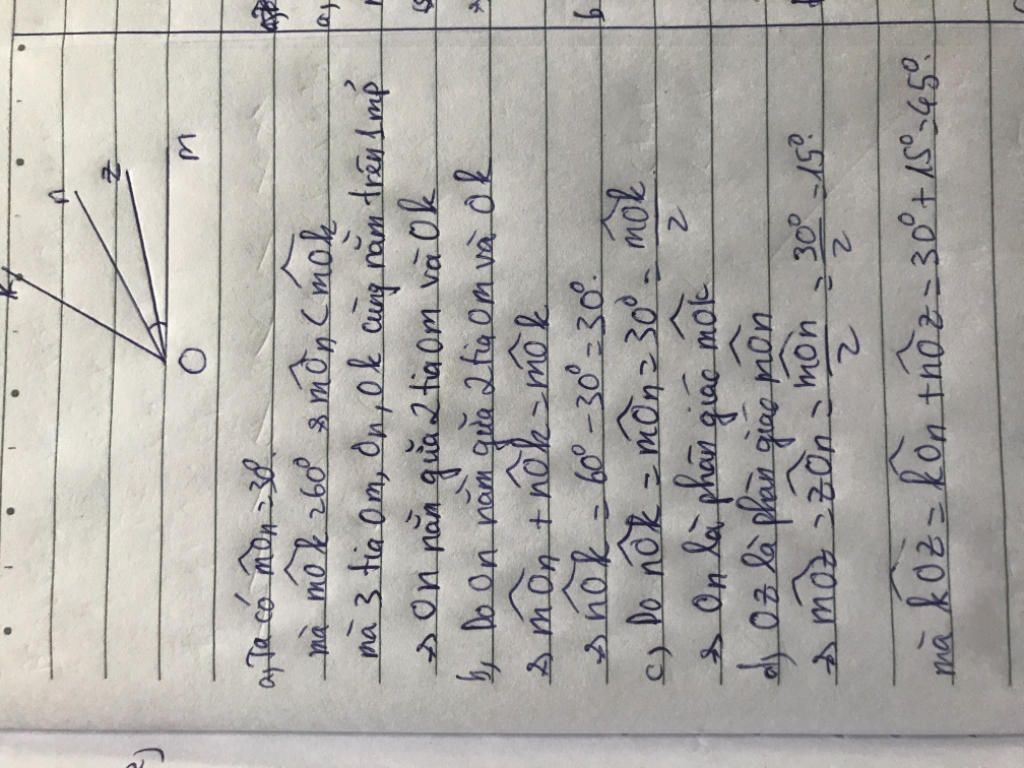 k
n
z
O
m
a, Ta có m̂On = 30°.
mà m̂Ok = 60° => m̂On < m̂Ok
mà 3 tia Om, On, Ok cùng nằm trên 1 mp
=> On nằm giữa 2 tia Om và Ok
b, Do On nằm giữa 2 tia Om và Ok
=> m̂On + n̂Ok = m̂Ok
=> n̂Ok = 60° - 30° = 30°.
c, Do n̂Ok = m̂On = 30° = m̂Ok/2
=> On là phân giác m̂Ok
d, Oz là phân giác n̂On
=> m̂Oz = ẑOn = m̂On/2 = 30°/2 = 15°.
mà k̂Oz = k̂On + n̂Oz = 30° + 15° = 45°.
2)
a,
b